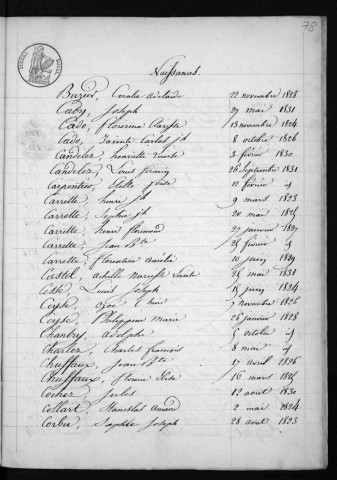 78
Naissances.
Buzier, Coralie adelaïde 22 novembre 1828
Cady, Joseph 27 mai 1831
Cado, floremna Clarisse 13 novembre 1824
Cado, Sainte Carlos jh 8 octobre 1826
Candelez, henriette Louise 3 février 1830
Candelez, Louis 26 Septembre 1831
Carpentier, 12 février
Carrette, henri jh 9 mars 1823
Carrette, Sophie jh 20 mai 1825
Carrette, henri florimond 27 janvier 1827
Carrette, jean Bte 25 février
Carrette, florentine amélie 10 juin 1829
Castel, achille narcisse Louis 26 mai 1831
Louis Joseph 15 juin 1824
7 novembre 1826
Philippine marie 26 janvier 1828
Chantry, adolphe 6 octobre
Charlez, Charles françois 8 mai
Chuffaux, jean Bte 17 avril 1826
Chuffaux, 16 mars 1825
Cocher, Jules 12 août 1830
Collart, Stanislas amand 2 mai 1824
Corbu, Sophie Joseph 28 août 1823